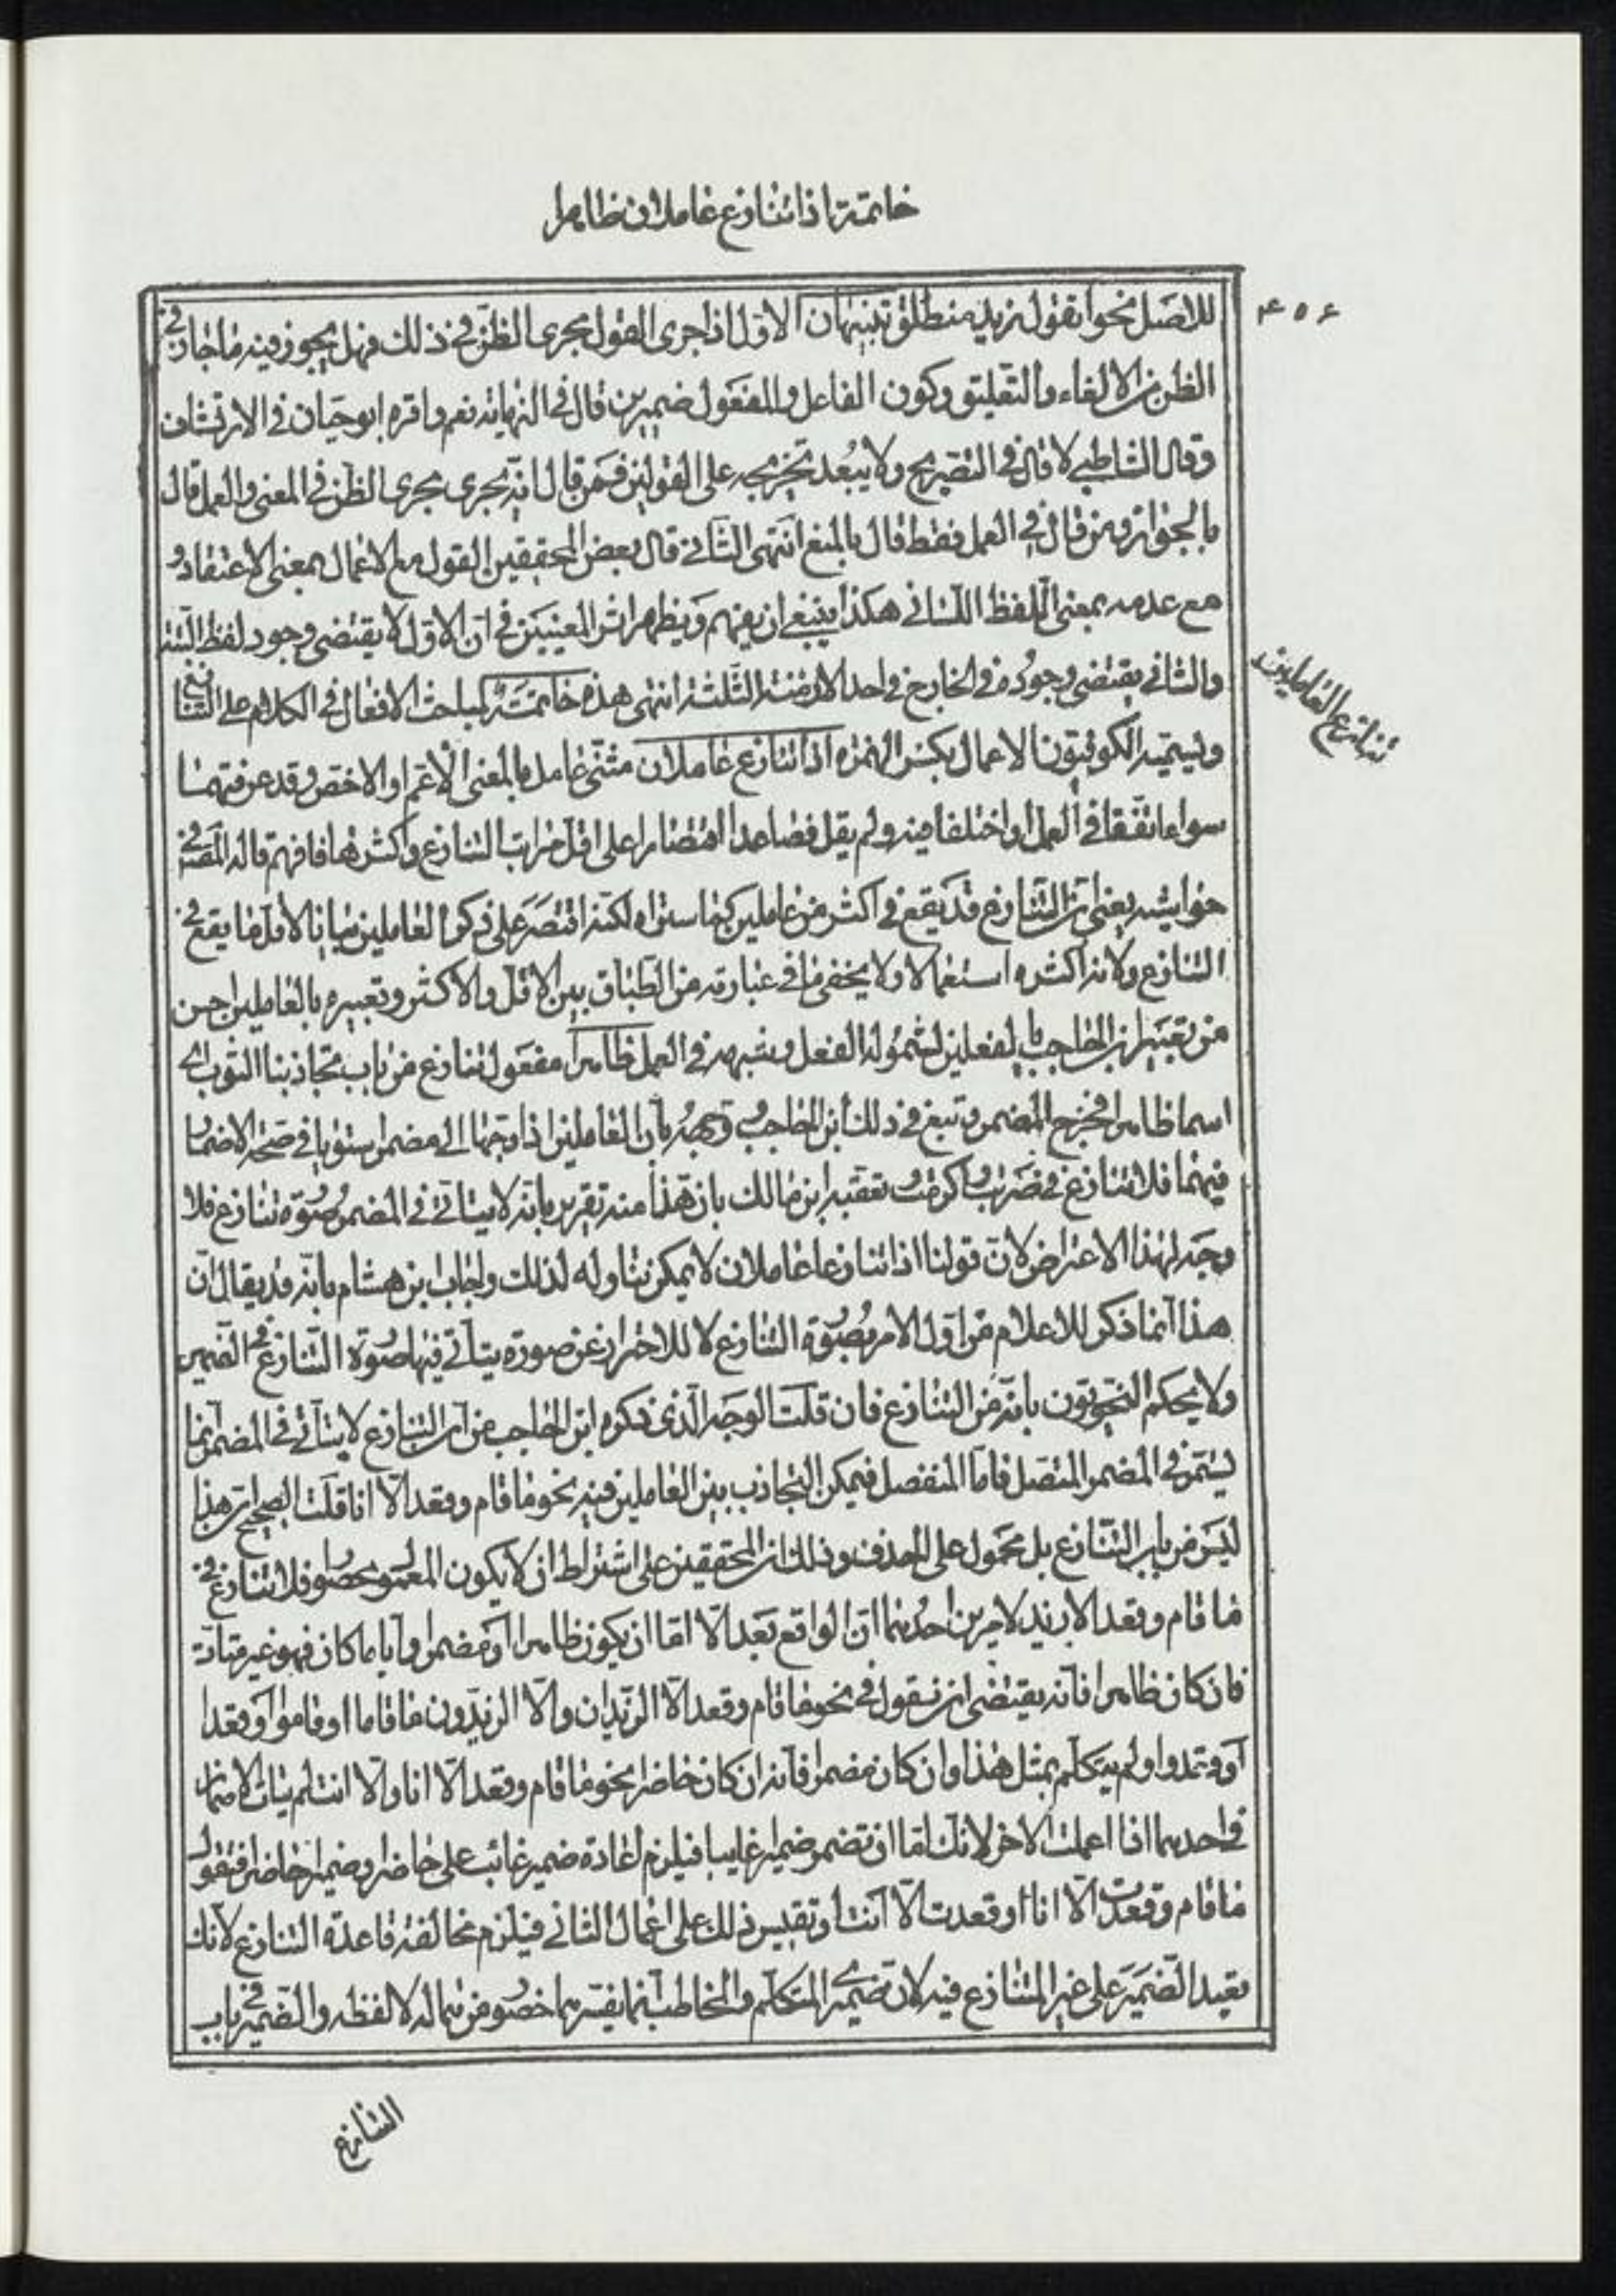 خاتمة اذا تنازع عاملان ظاهرا
۴۵۶
للاصل نحو اتقول زيد منطلق تنبيهان الاول اذا جرى القول مجرى الظن في ذلك فهل يجوز فيه ما جاز في
الظن من الالغاء والتعليق وكون الفاعل والمفعول ضميرين قال في النهاية نعم واقره ابو حيان في الارتشاف
وقال الشاطبي لا قال في التصريح ولا يبعد تخريجه على القولين فمن قال انه يجرى مجرى الظن في المعنى والعمل قال
بالجواز ومن قال في العمل فقط قال بالمنع انتهى الثاني قال بعض المحققين القول مع الاعمال بمعنى الاعتقاد و
مع عدمه بمعنى اللفظ اللساني هكذا ينبغي ان يفهم ويظهر اثر المعنيين في ان الاول لا يقتضى وجود لفظ البتة
والثاني يقتضى وجوده في الخارج في احد الازمنة الثلثة انتهى هذه خاتمة لمباحث الافعال في الكلام على التنازع
تنازع العاملين
ويسميه الكوفيون الاعمال بكسر الهمزه اذا تنازع عاملان مثنى عامل بالمعنى الاعم او الاخص وقد عرفتهما
سواء اتفقا في العمل او اختلفا فيه ولم يقل فصاعدا اقتصارا على اقل مراتب التنازع واكثرها فافهم قاله المصنف في
حواشيه يعني ان التنازع قد يقع في اكثر من عاملين كما ستراه لكنه اقتصر على ذكر العاملين بيانا لاقل ما يقع في
التنازع ولانه اكثره استعمالا ولا يخفى ما في عبارته من الطباق بين الاقل والاكثر وتعبيره بالعاملين احسن
من تعبير ابن الحاجب بالفعلين لشموله الفعل وشبهه في العمل ظاهرا مفعول تنازع من باب تجاذبنا الثوب اى
اسما ظاهرا فخرج المضمر وتبع في ذلك ابن الحاجب وتوجيهه بان العاملين اذا وجها الى مضمر استويا في صحة الاضمار
فيهما فلا تنازع في ضربت واكرمت تعقبه ابن مالك بان هذا منه تقرير بانه لا يتأتى في المضمر صورة تنازع فلا
وجه لهذا الاعتراض لان قولنا اذا تنازعا عاملان لا يمكن تناوله لذلك واجاب ابن هشام بانه قد يقال ان
هذا انما ذكر للاعلام من اول الامر بصورة التنازع لا للاحتراز عن صورة يتأتى فيها صورة التنازع في الضمير
ولا يحكم النحويون بانه من التنازع فان قلت الوجه الذي ذكره ابن الحاجب من ان التنازع لا يتأتى في المضمر انما
يستمر في المضمر المتصل فاما المنفصل فيمكن التجاذب بين العاملين فيه نحو ما قام وقعد الا انا قلت الصحيح ان هذا
ليس من باب التنازع بل محمول على الحذف وذلك ان المحققين على اشتراط ان لا يكون المعمول محصورا فلا تنازع في
ما قام وقعد الا زيد لامرين احدهما ان الواقع بعد الا اما ان يكون ظاهرا او مضمرا واياما كان فهو غير متأت
فان كان ظاهرا فانه يقتضى ان نقول في نحو ما قام وقعد الا الزيدان والا الزيدون ما قاما او قاموا او قعدا
او قعدوا ولم يتكلم بمثل هذا وان كان مضمرا فانه ان كان حاضرا نحو ما قام وقعد الا انا والا انت لم يتأت الاضمار
في احدهما اذا اعملت الاخر لانك اما ان تضمر ضمير غايبا فيلزم اعادة ضمير غائب على حاضر او ضمير حاضر فتقول
ما قام وقعدت الا انا او قعدت الا انت وتقيس ذلك على اعمال الثاني فيلزم مخالفة قاعدة التنازع لانك
تعيد الضمير على غير المتنازع فيه لان ضميرى المتكلم والمخاطب انما يفسرهما حضور من هما له لا لفظه والضمير في باب
التنازع